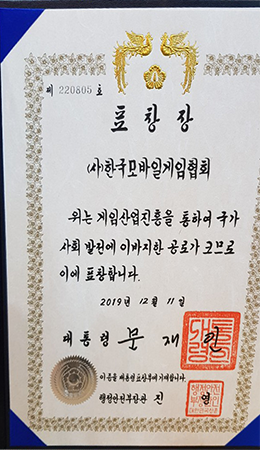 제 220805 호
표창장
(사)한국모바일게임협회
위는 게임산업진흥을 통하여 국가
사회 발전에 이바지한 공로가 크므로
이에 표창합니다.
2019년 12월 11일
대통령 문재인
이 증을 대통령표창부에 기재합니다.
행정안전부장관 진영